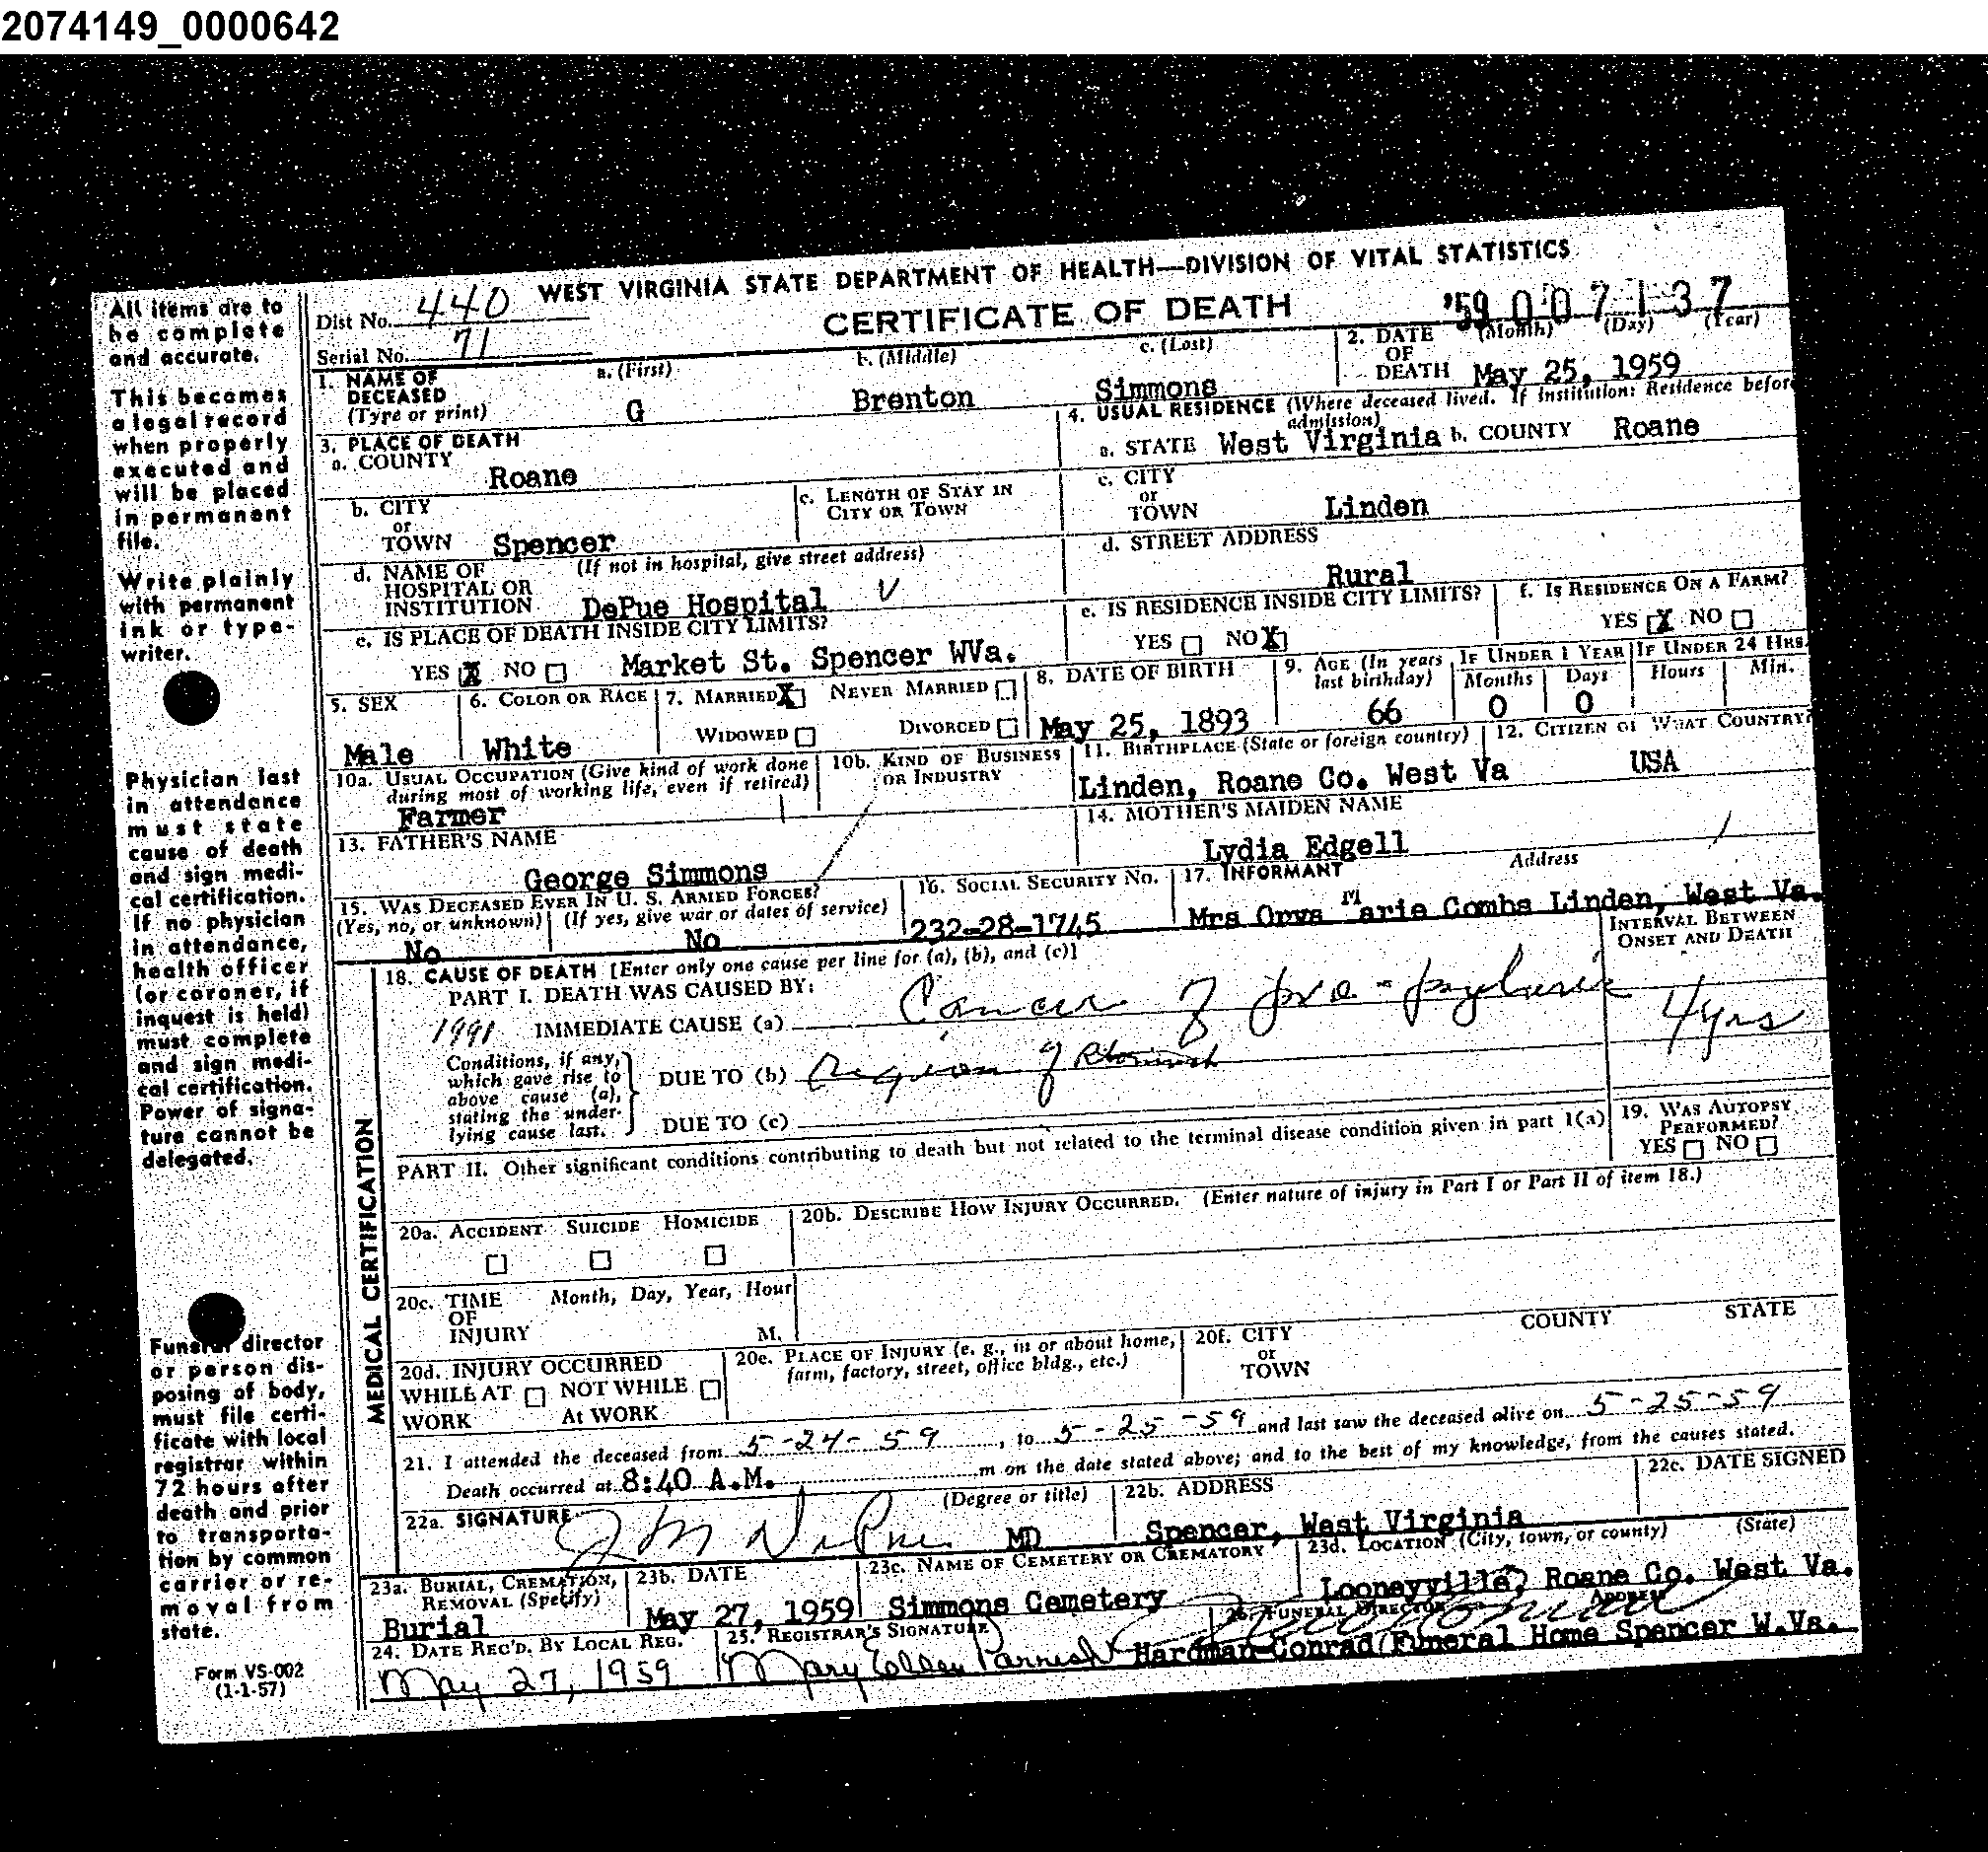 2074149_0000642
WEST VIRGINIA STATE DEPARTMENT OF HEALTH—DIVISION OF VITAL STATISTICS
CERTIFICATE OF DEATH
'59 007137
Dist No. 440
Serial No. 71
All items are to
be complete
and accurate.
This becomes
a legal record
when properly
executed and
will be placed
in permanent
file.
Write plainly
with permanent
ink or type-
writer.
Physician last
in attendance
must state
cause of death
and sign medi-
cal certification.
If no physician
in attendance,
health officer
(or coroner, if
inquest is held)
must complete
and sign medi-
cal certification.
Power of signa-
ture cannot be
delegated.
Funeral director
or person dis-
posing of body,
must file certi-
ficate with local
registrar within
72 hours after
death and prior
to transporta-
tion by common
carrier or re-
moval from
state.
Form VS-002
(1-1-57)
1. NAME OF DECEASED (Type or print)
a. (First) G
b. (Middle) Brenton
c. (Last) Simmons
2. DATE OF DEATH (Month) (Day) (Year) May 25, 1959
3. PLACE OF DEATH
a. COUNTY Roane
b. CITY or TOWN Spencer
c. LENGTH OF STAY IN CITY OR TOWN
d. NAME OF HOSPITAL OR INSTITUTION (If not in hospital, give street address) DePue Hospital V
e. IS PLACE OF DEATH INSIDE CITY LIMITS?
YES X NO Market St. Spencer WVa.
4. USUAL RESIDENCE (Where deceased lived. If institution: Residence before admission)
a. STATE West Virginia b. COUNTY Roane
c. CITY or TOWN Linden
d. STREET ADDRESS Rural
e. IS RESIDENCE INSIDE CITY LIMITS? YES NO X
f. IS RESIDENCE ON A FARM? YES X NO
5. SEX Male
6. COLOR OR RACE White
7. MARRIED X NEVER MARRIED
WIDOWED DIVORCED
8. DATE OF BIRTH May 25, 1893
9. AGE (In years last birthday) 66
IF UNDER 1 YEAR Months 0 Days 0
IF UNDER 24 HRS. Hours Min.
10a. USUAL OCCUPATION (Give kind of work done during most of working life, even if retired) Farmer
10b. KIND OF BUSINESS OR INDUSTRY
11. BIRTHPLACE (State or foreign country) Linden, Roane Co. West Va
12. CITIZEN OF WHAT COUNTRY? USA
13. FATHER'S NAME George Simmons
14. MOTHER'S MAIDEN NAME Lydia Edgell
15. WAS DECEASED EVER IN U. S. ARMED FORCES?
(Yes, no, or unknown) No
(If yes, give war or dates of service) No
16. SOCIAL SECURITY NO. 232-28-1745
17. INFORMANT Address
Mrs Opys Marie Combs Linden, West Va.
MEDICAL CERTIFICATION
18. CAUSE OF DEATH [Enter only one cause per line for (a), (b), and (c)]
INTERVAL BETWEEN ONSET AND DEATH
PART I. DEATH WAS CAUSED BY:
1991 IMMEDIATE CAUSE (a) Cancer of pre-pyloric 4 yrs
Conditions, if any, which gave rise to above cause (a), stating the underlying cause last.
DUE TO (b) region of stomach
DUE TO (c)
PART II. Other significant conditions contributing to death but not related to the terminal disease condition given in part 1(a)
19. WAS AUTOPSY PERFORMED? YES NO
20a. ACCIDENT SUICIDE HOMICIDE
20b. DESCRIBE HOW INJURY OCCURRED. (Enter nature of injury in Part I or Part II of item 18.)
20c. TIME OF INJURY Month, Day, Year, Hour M.
20d. INJURY OCCURRED WHILE AT WORK NOT WHILE At WORK
20e. PLACE OF INJURY (e. g., in or about home, farm, factory, street, office bldg., etc.)
20f. CITY or TOWN COUNTY STATE
21. I attended the deceased from 5-24-59, to 5-25-59 and last saw the deceased alive on 5-25-59
Death occurred at 8:40 A.M. m on the date stated above; and to the best of my knowledge, from the causes stated.
22a. SIGNATURE (Degree or title) J M DePue MD
22b. ADDRESS Spencer, West Virginia
22c. DATE SIGNED
23a. BURIAL, CREMATION, REMOVAL (Specify) Burial
23b. DATE May 27, 1959
23c. NAME OF CEMETERY OR CREMATORY Simmons Cemetery
23d. LOCATION (City, town, or county) (State) Looneyville, Roane Co. West Va.
24. DATE REC'D. BY LOCAL REG. May 27, 1959
25. REGISTRAR'S SIGNATURE Mary Ellen Parrish
26. FUNERAL DIRECTOR ADDRESS
Hardman-Conrad Funeral Home Spencer W.Va.